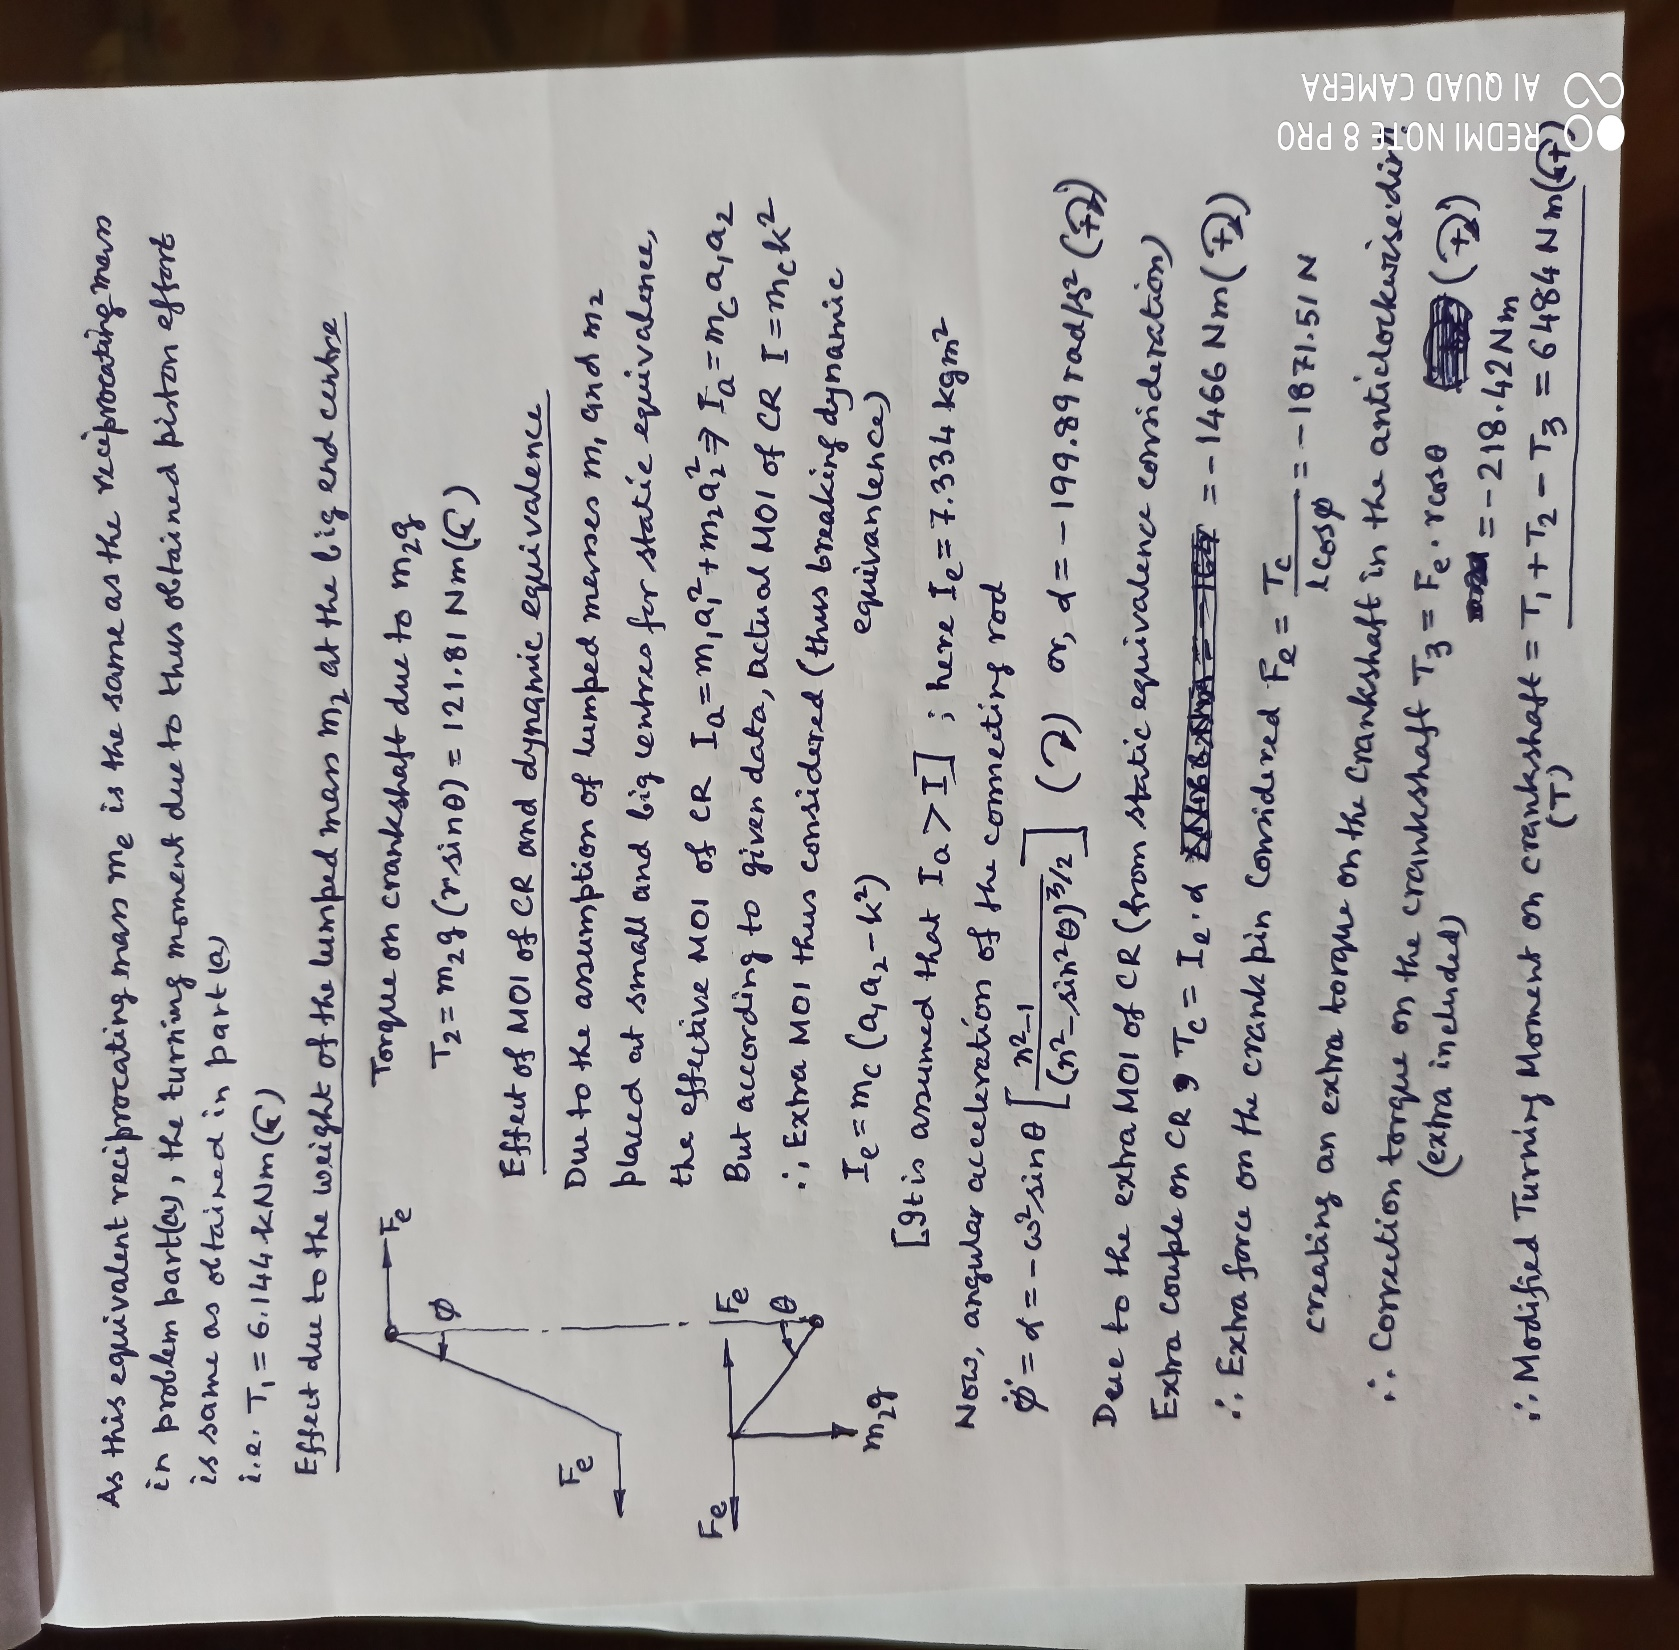 As this equivalent reciprocating mass me is the same as the reciprocating mass
in problem part(a), the turning moment due to thus obtained piston effort
is same as obtained in part (a)
i.e. T₁ = 6.144 kNm (↶)
Effect due to the weight of the lumped mass m₂ at the big end centre
Torque on crankshaft due to m₂g
T₂ = m₂g (r sinθ) = 121.81 Nm (↶)
Effect of MOI of CR and dynamic equivalence
Due to the assumption of lumped masses m₁ and m₂
placed at small and big centres for static equivalence,
the effective MOI of CR Ia = m₁a₁² + m₂a₂² ⇒ Ia = mc a₁a₂
But according to given data, actual MOI of CR I = mck²
∴ Extra MOI thus considered (thus breaking dynamic
equivanlence)
Ie = mc (a₁a₂ - k²)
[It is assumed that Ia > I] ; here Ie = 7.334 kgm²
Now, angular acceleration of the connecting rod
φ̈ = α = -ω² sinθ [ n²-1 / (n² - sin²θ)^3/2 ] (↷) or, α = -199.89 rad/s² (↷+)
Due to the extra MOI of CR (from static equivalence consideration)
Extra couple on CR, Tc = Ie·α = -1466 Nm (↷+)
∴ Extra force on the crank pin considered Fe = Tc / l cosφ = -1871.51 N
creating an extra torque on the crankshaft in the anticlockwise dirⁿ.
∴ Correction torque on the crankshaft T₃ = Fe · r cosθ (↷+)
(extra included)
= -218.42 Nm
∴ Modified Turning Moment on crankshaft = T₁ + T₂ - T₃ = 6484 Nm (↶+)
(T)
Fe
φ
Fe
Fe
Fe
θ
m₂g
REDMI NOTE 8 PRO
AI QUAD CAMERA